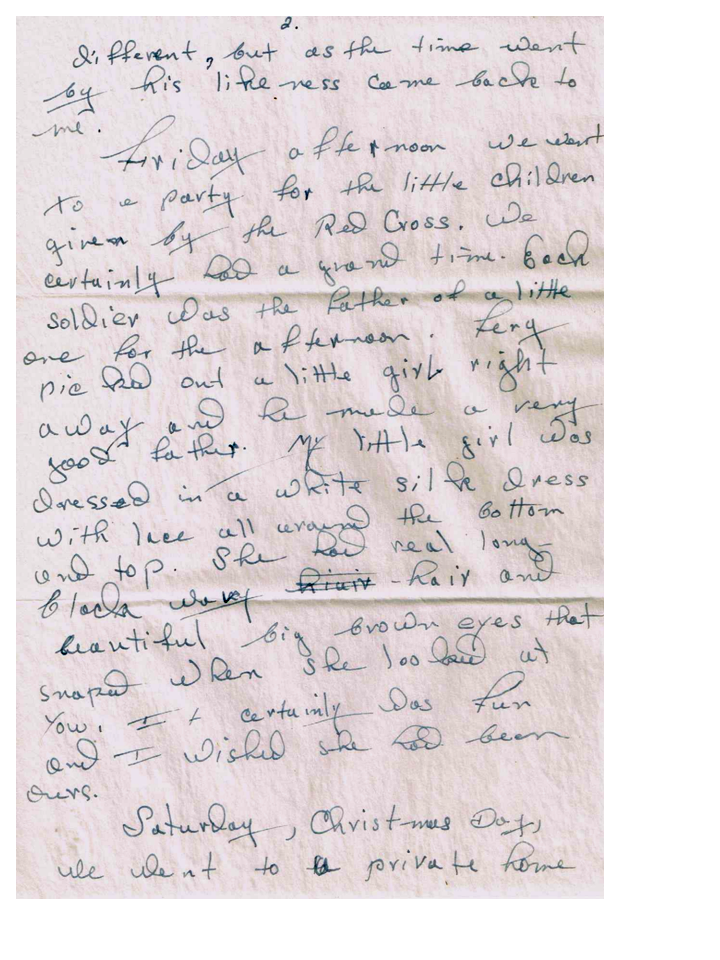 2.
different, but as the time went
by his likeness came back to
me.
Friday afternoon we went
to a party for the little children
given by the Red Cross. We
certainly had a grand time. Each
soldier was the father of a little
one for the afternoon. Ferg
picked out a little girl right
away and he made a very
good father. My little girl was
dressed in a white silk dress
with lace all around the bottom
and top. She had real long
black wavy hair and
beautiful big brown eyes that
snaped when she looked at
you. It certainly was fun
and I wished she had been
ours.
Saturday, Christmas Day,
we went to a private home